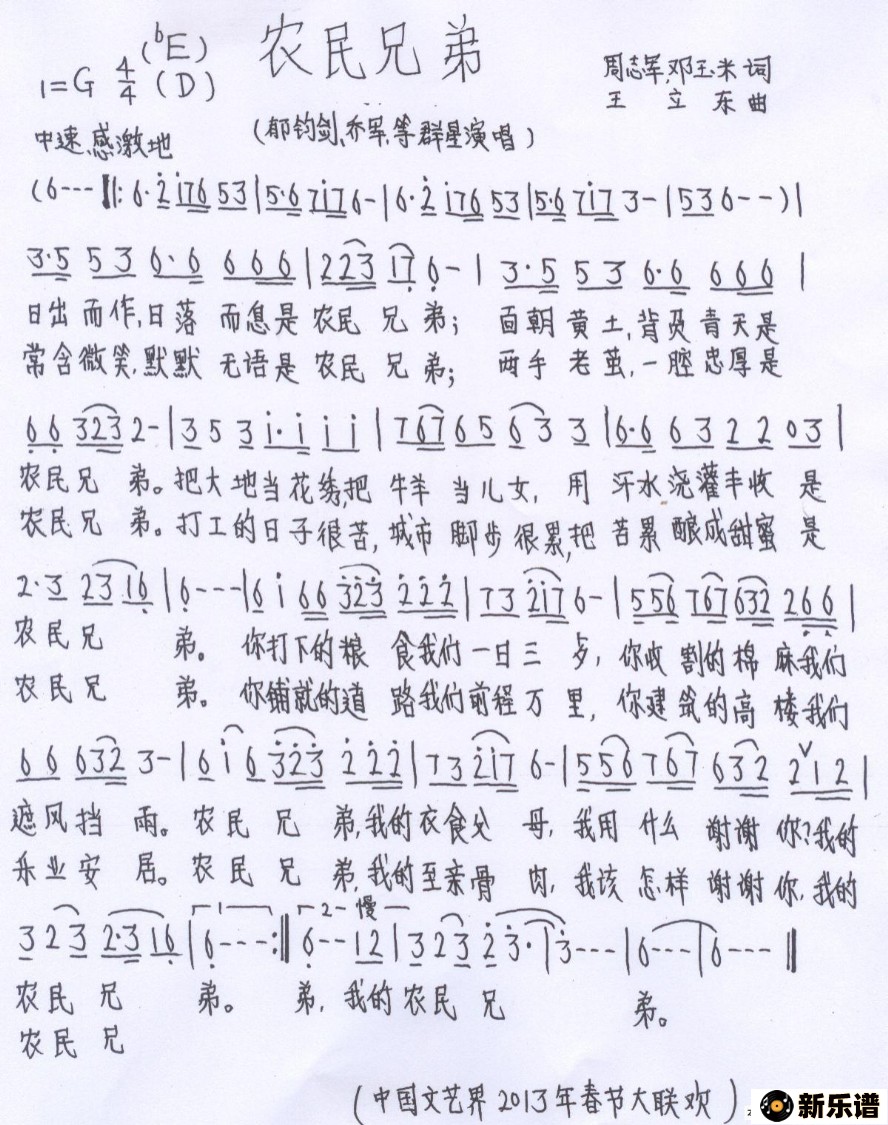 农民兄弟
1=G 4/4 (ᵇE) (D)
周志军,邓玉米 词
王 立 东 曲
中速、感激地
(郁钧剑、乔军、等群星演唱)
(6--- ‖: 6·2̇ 1̇76 53 | 5·6 71̇7 6- | 6·2̇ 1̇76 53 | 5·6 71̇7 3- | 536-- ) |
3·5 53 6·6 666 | 223 17̣ 6̣- | 3·5 53 6·6 666 |
日出而作,日落 而息是 农民 兄 弟; 面朝黄土,背负青天是
常含微笑,默默 无语是 农民 兄 弟; 两手老茧,一腔忠厚是
6̣6̣ 323 2- | 3 5 3 1̇·1̇ 1̇ 1̇ | 767 65 63 3 | 6·6 63 22 03 |
农民兄 弟。把大地当花绣,把 牛羊 当儿女, 用 汗水浇灌丰收 是
农民兄 弟。打工的日子很苦,城市 脚步很累,把 苦累酿成甜蜜 是
2·3 2316̣ | 6̣--- | 6 1̇ 66 3̇2̇3̇ 2̇2̇2̇ | 73 2̇1̇7 6- | 556 767 632 26̣6̣ |
农民兄 弟。 你打下的粮 食我们一日三 歺, 你收 割的棉 麻我们
农民兄 弟。 你铺就的道 路我们前程万 里, 你建筑的高 楼我们
66 632 3- | 6 1̇ 6 3̇2̇3̇ 2̇2̇2̇ | 73 2̇1̇7 6- | 556 767 632 2∨12 |
遮风挡 雨。农民 兄 弟,我的衣食父 母, 我用 什么 谢谢 你?我的
乐业安 居。农民 兄 弟,我的至亲骨 肉, 我该 怎样 谢谢 你,我的
1 2 慢
3 23 2·3 16̣ | 6̣---:‖ 6̣--12 | 3 23 2̇ 3̇· | 3̇---- | 6--- | 6---- ‖
农民 兄 弟。 弟,我的农民 兄 弟。
农民 兄
(中国文艺界2013年春节大联欢)
新乐谱